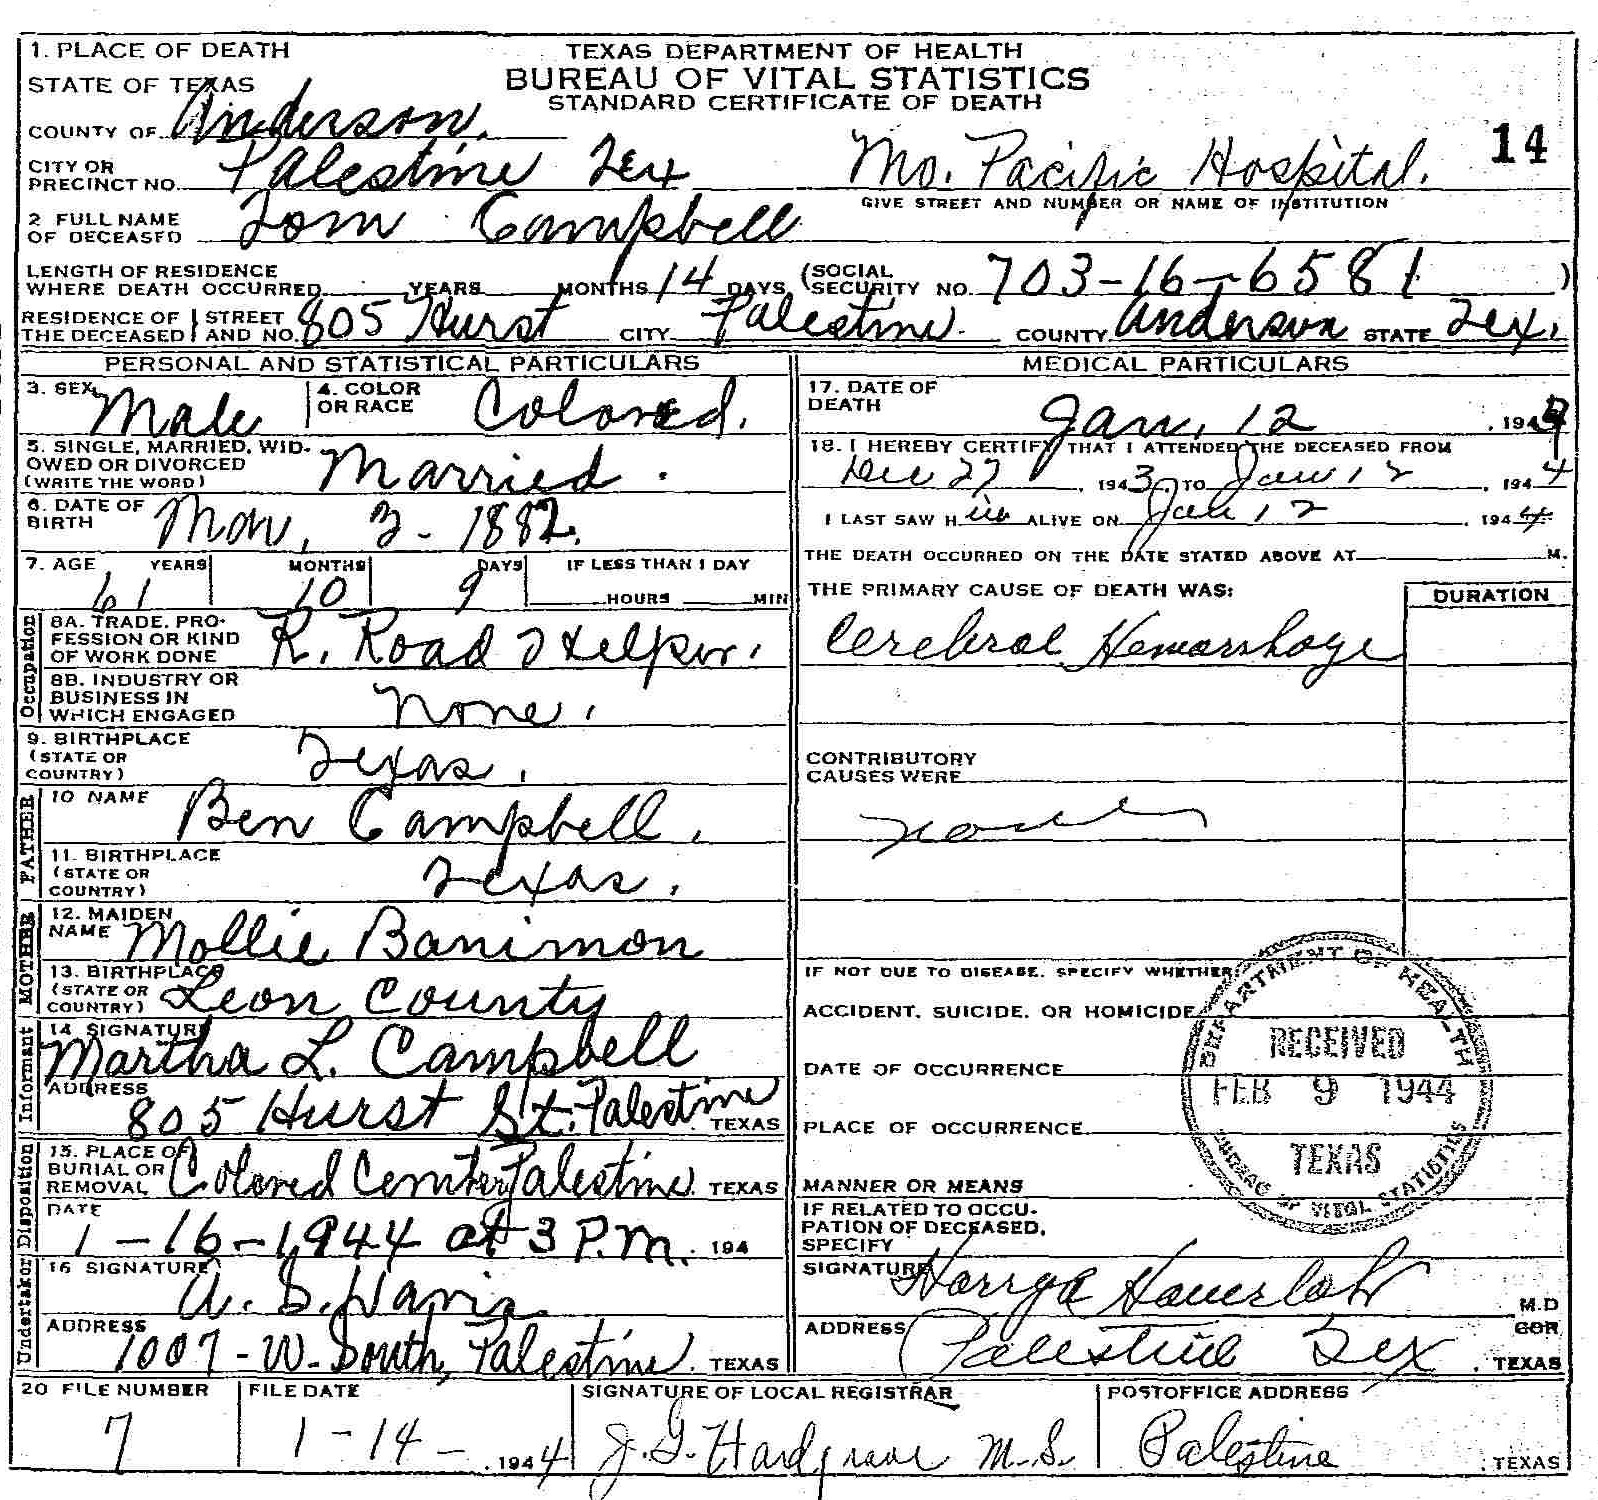 1. PLACE OF DEATH
TEXAS DEPARTMENT OF HEALTH
STATE OF TEXAS
BUREAU OF VITAL STATISTICS
STANDARD CERTIFICATE OF DEATH
COUNTY OF Anderson.
14
CITY OR PRECINCT NO. Palestine Tex Mo. Pacific Hospital.
GIVE STREET AND NUMBER OR NAME OF INSTITUTION
2 FULL NAME OF DECEASED Tom Campbell
LENGTH OF RESIDENCE WHERE DEATH OCCURRED YEARS MONTHS 14 DAYS (SOCIAL SECURITY NO. 703-16-6581)
RESIDENCE OF THE DECEASED STREET AND NO. 805 Hurst CITY Palestine. COUNTY Anderson STATE Tex.
PERSONAL AND STATISTICAL PARTICULARS
3. SEX Male 4. COLOR OR RACE Colored.
5. SINGLE, MARRIED, WIDOWED OR DIVORCED (WRITE THE WORD) Married.
6. DATE OF BIRTH Mar. 3 - 1882.
7. AGE YEARS MONTHS DAYS IF LESS THAN 1 DAY
61 10 9 HOURS MIN
Occupation
8A. TRADE, PROFESSION OR KIND OF WORK DONE R. Road Helper.
8B. INDUSTRY OR BUSINESS IN WHICH ENGAGED None.
9. BIRTHPLACE (STATE OR COUNTRY) Texas.
FATHER
10 NAME Ben Campbell.
11. BIRTHPLACE (STATE OR COUNTRY) Texas.
MOTHER
12. MAIDEN NAME Mollie Banimon
13. BIRTHPLACE (STATE OR COUNTRY) Leon County
Informant
14 SIGNATURE Martha L. Campbell
ADDRESS 805 Hurst St. Palestine TEXAS
Disposition
15. PLACE OF BURIAL OR REMOVAL Colored Palestine. TEXAS
DATE 1-16-1944 at 3 P.M. 194
Undertaker
16 SIGNATURE A. S. Davis
ADDRESS 1007 - W. South, Palestine. TEXAS
MEDICAL PARTICULARS
17. DATE OF DEATH Jan. 12, 1944
18. I HEREBY CERTIFY THAT I ATTENDED THE DECEASED FROM
Dec 27, 1943, TO Jan 12, 1944
I LAST SAW H im ALIVE ON Jan 12, 1944
THE DEATH OCCURRED ON THE DATE STATED ABOVE AT M.
THE PRIMARY CAUSE OF DEATH WAS: DURATION
Cerebral Hemorrhage
CONTRIBUTORY CAUSES WERE
none
IF NOT DUE TO DISEASE, SPECIFY WHETHER:
ACCIDENT, SUICIDE, OR HOMICIDE
DATE OF OCCURRENCE
PLACE OF OCCURRENCE
MANNER OR MEANS
IF RELATED TO OCCUPATION OF DECEASED, SPECIFY
DEPARTMENT OF HEALTH
RECEIVED
FEB 9 1944
TEXAS
BUREAU OF VITAL STATISTICS
SIGNATURE M.D
ADDRESS Palestine Tex. COR. TEXAS
20 FILE NUMBER 7
FILE DATE 1-14-, 1944
SIGNATURE OF LOCAL REGISTRAR J. G. Hardgrave M.S.
POSTOFFICE ADDRESS Palestine, TEXAS